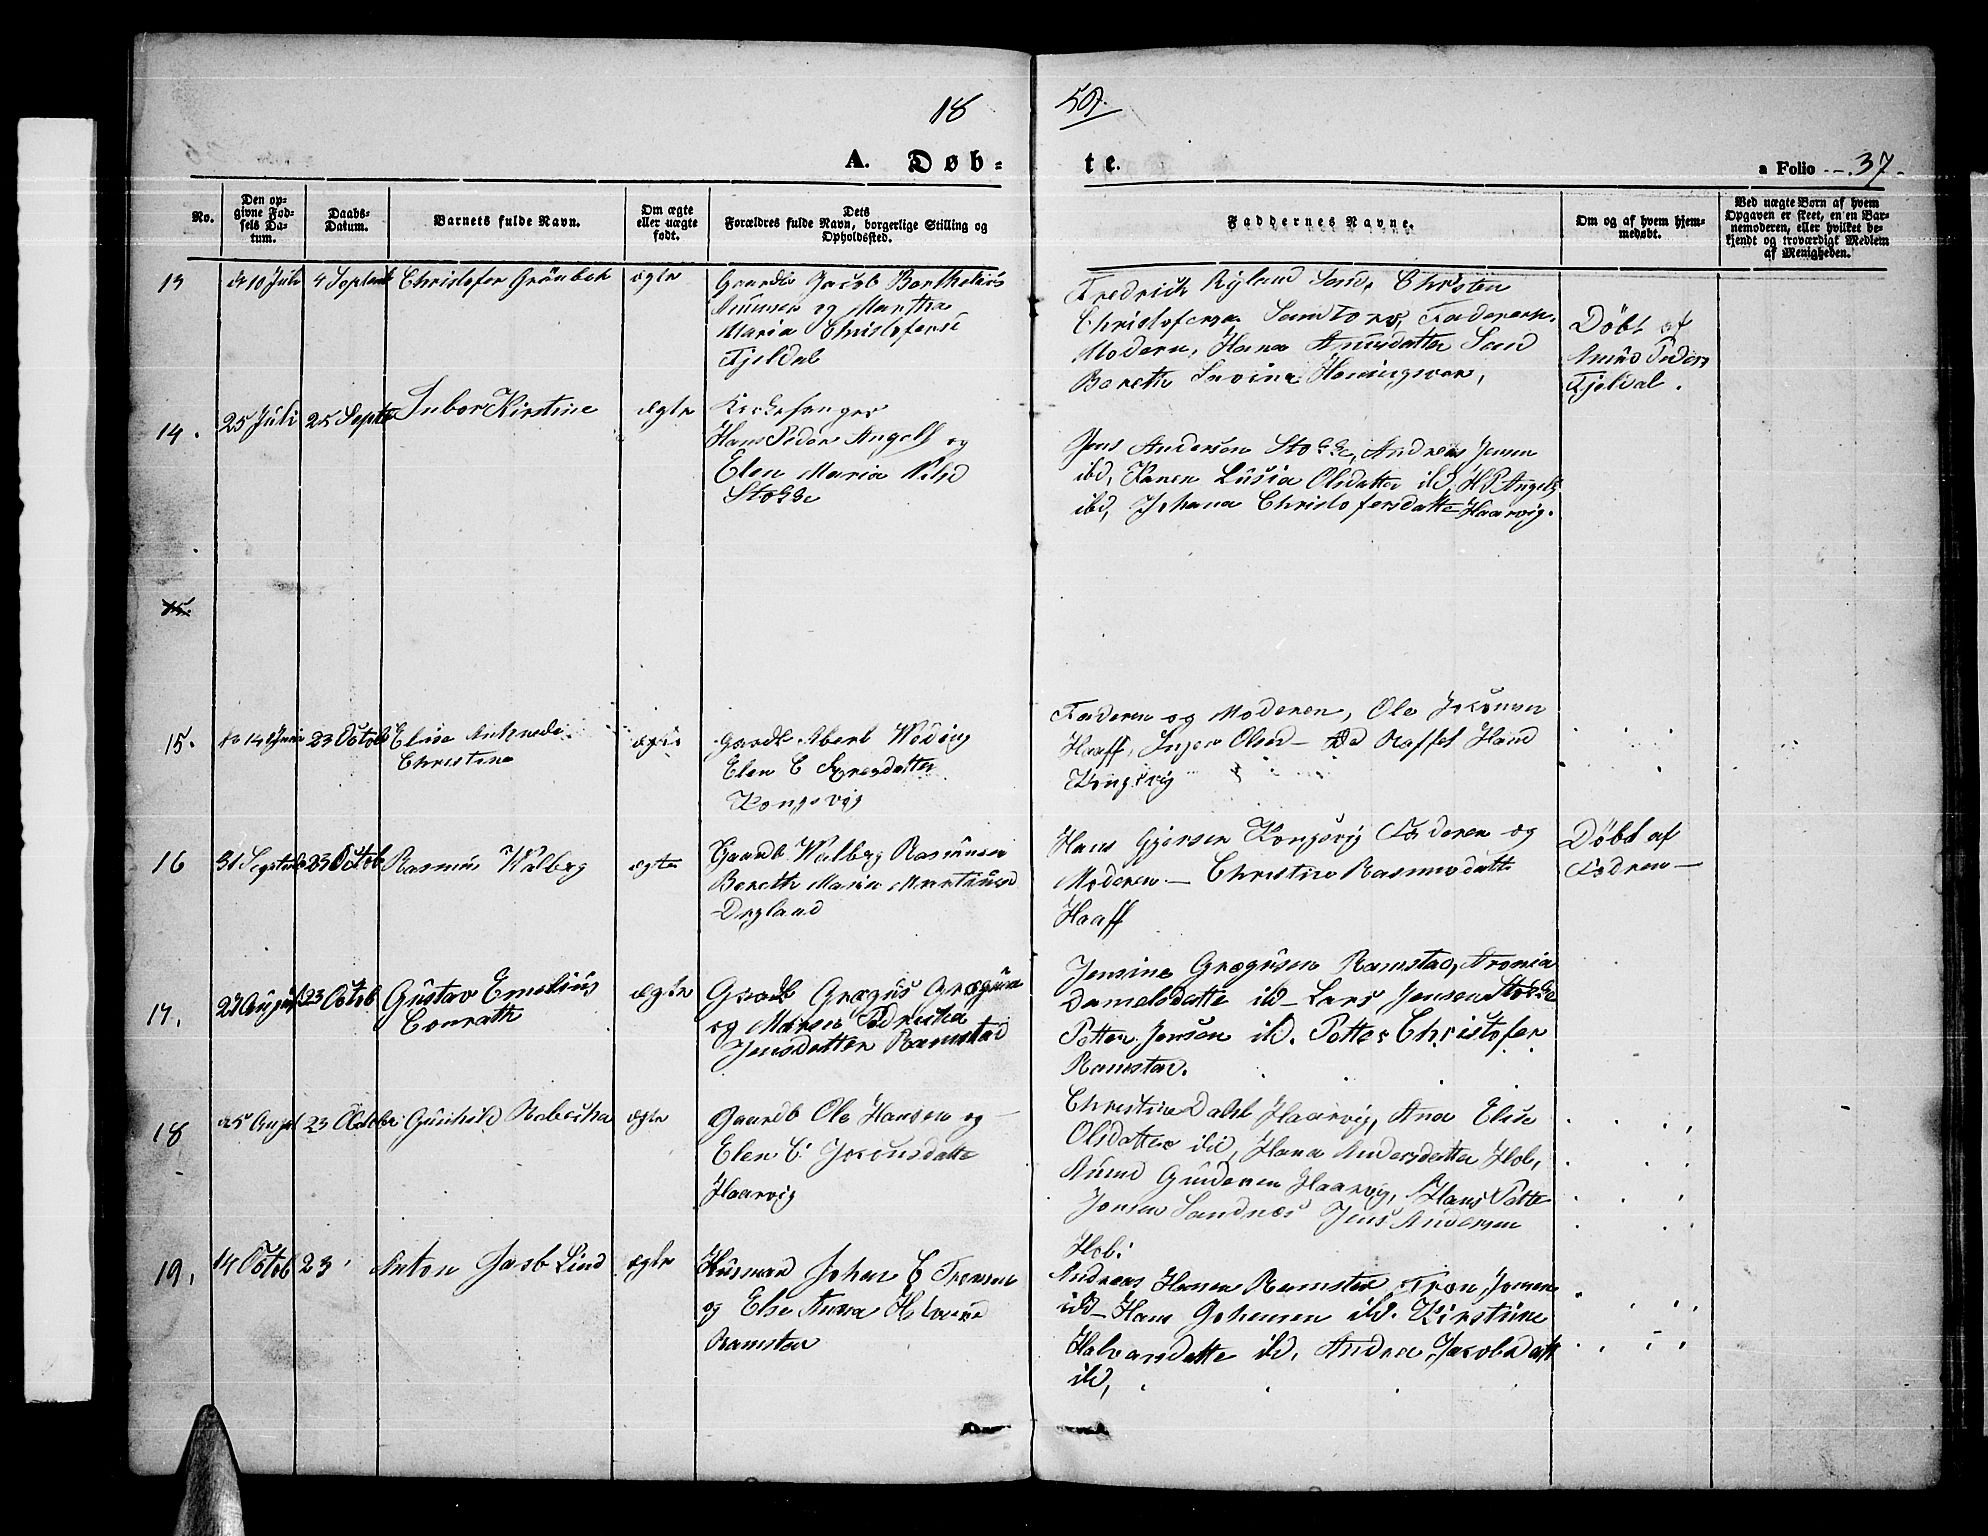 18
59.
A. Døb-
te.
a Folio 37.
No.
Den op-
givne Fød-
sels Da-
tum.
Daabs-
Datum.
Barnets fulde Navn.
Om ægte
eller uægte
født.
Dets
Forældres fulde Navn, borgerlige Stilling og
Opholdssted.
Faddernes Navne.
Om og af hvem hjem-
medøbt.
Ved uægte Børn af hvem
Opgaven er skeet, en en Bar-
nemoderen, eller hvilket be-
kjendt og troværdigt Medlem
af Menigheden.
13
10 Juli
4 Septemb
Christofer Grönbek
ægte
Jacob
og Martha
Maria Christofers
Fjeldal
Fredrik Ryland Sand, Christen
Christofersen Sandtorv, Faderen
Moderen, Hana Sand
Bereth Havingsvar,
Døbt af
Peders
Fjeldal.
14.
25 Juli
25 Septe
Kirstine
ægte
Kirkesanger
Hans Peder Angell og
Elen Maria Nilsd
Stokke
Jens Andersen Stokke, Andreas Jensen
ibd, Karen Lusia Olsdatter ibd, H P Angell
ibd, Johana Christofersdatte Haarvig.
15.
15.
14 Juni
23 Octob
Elise
Christine
ægte
Gaardb Abert Wæding
Elen C
Kongsvig
Faderen og Moderen, Ole
Haaff, Inger Olsd
Kongsvig
16
31
23 Octob
Rasmus Walberg
ægte
Gaardb Walberg Rasmusen
Bereth Maria
Dreyland
Hans Kongsvig Faderen og
Moderen — Christine Rasmusdatte
Haaff
Døbt af
Fadren —
17.
27 August
23 Octob
Gustav Emelius
Conrath
ægte
Gaardb Grægus Grægusen
og Maren
Jensdatter Ramstad
Jensine Grægusen Ramstad,
Danielsdatte ibd — Lars Jensen Stokke
Petter Jensen ibd. Petter Christofer
Ramstad.
18
25 Augst
23 Octobr
Gunhild Rebecka
ægte
Gaardb Ole Hansen og
Elen C.
Haarvig
Christine Dahl Haarvig, Ana Elise
Olsdatter ibd, Hana Andersdatter Hol,
Haarvig, Hans Pette
Jensen Sandnæs Jens Andersen
Hol.
19.
14 Octob
23
Anton Jacob Lind
ægte
Husmand Johan C
og Else Anna
Ramstad
Andreas Hansen Ramstad,
ibd — Hans Johansen ibd. Kirstine
Halvarsdatte ibd. Andrea Jacobsdatt
ibd,